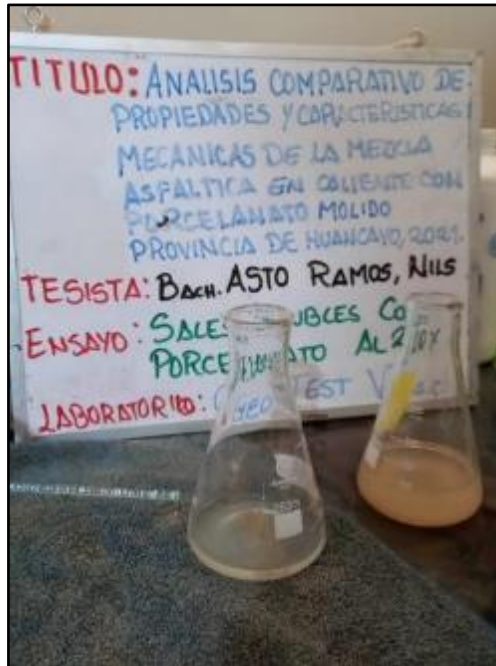 TITULO: ANALISIS COMPARATIVO DE
PROPIEDADES Y CARACTERISTICAS
MECANICAS DE LA MEZCLA
ASFALTICA EN CALIENTE CON
PORCELANATO MOLIDO
PROVINCIA DE HUANCAYO, 2021.
TESISTA: BACH. ASTO RAMOS, NILS
ENSAYO: SALES UBLES CO
PORCE ATO AL 2
LABORATORIO: TEST V